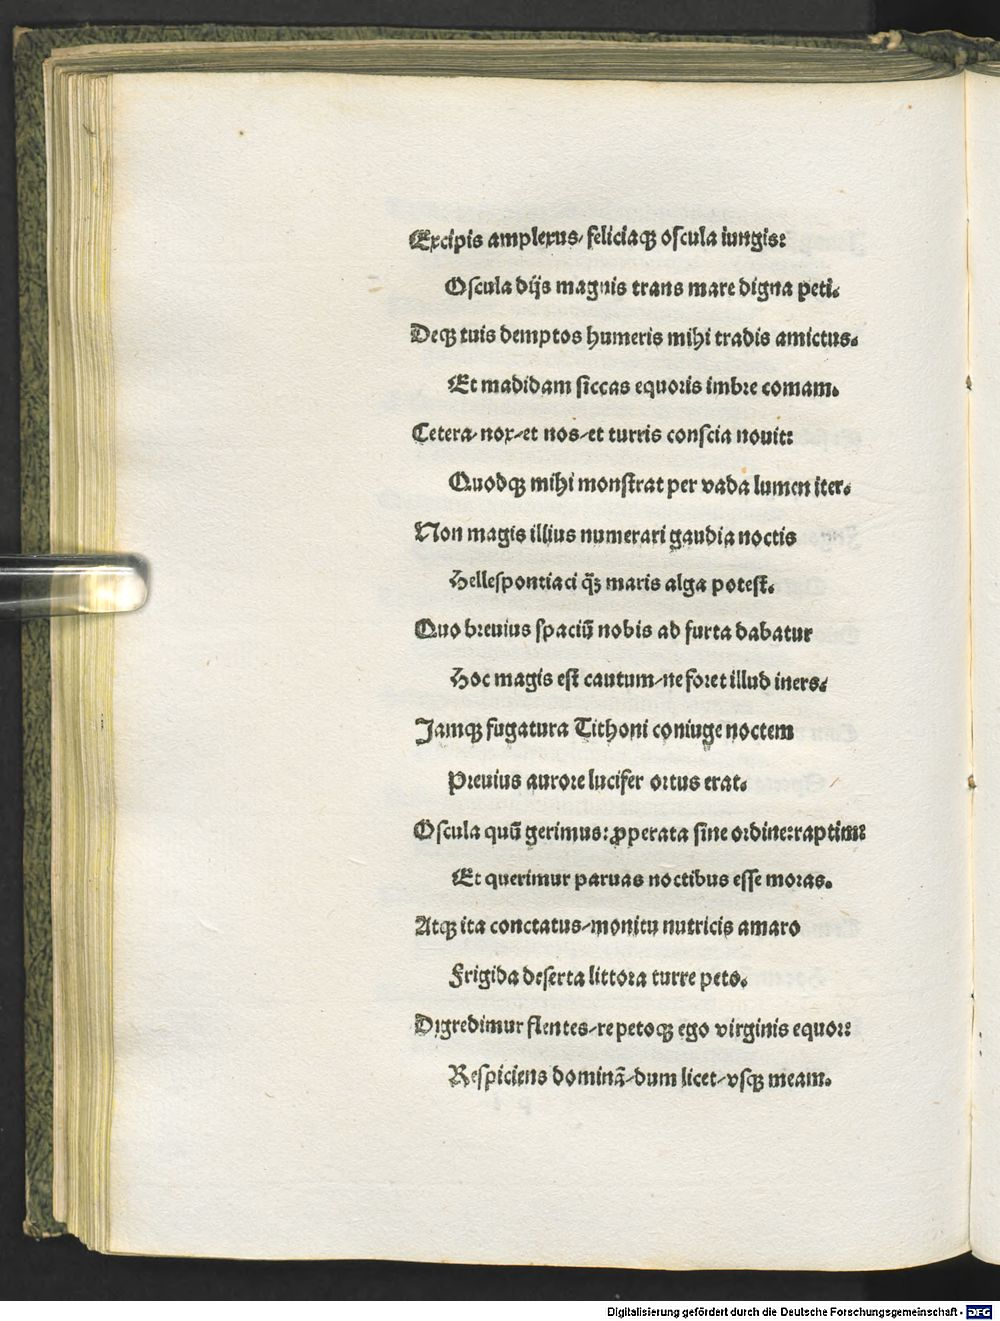 Excipis amplexus/ feliciaqꝫ oscula iungis:
Oscula dijs magnis trans mare digna peti.
Deqꝫ tuis demptos humeris mihi tradis amictus.
Et madidam siccas equoris imbre comam.
Cetera/ nox/et nos/et turris conscia nouit:
Quodqꝫ mihi monstrat per vada lumen iter.
Non magis illius numerari gaudia noctis
Hellespontiaci q̃ꝫ maris alga potest.
Quo breuius spaciũ nobis ad furta dabatur
Hoc magis est cautum/ne foret illud iners.
Jamqꝫ fugatura Tithoni coniuge noctem
Preuius aurore lucifer ortus erat.
Oscula quũ gerimus: ꝓperata sine ordine:raptim:
Et querimur paruas noctibus esse moras.
Atqꝫ ita conctatus/monitu nutricis amaro
Frigida deserta littora turre peto.
Digredimur flentes/repetoqꝫ ego virginis equor:
Respiciens dominã/dum licet/vsqꝫ meam.
Digitalisierung gefördert durch die Deutsche Forschungsgemeinschaft - DFG